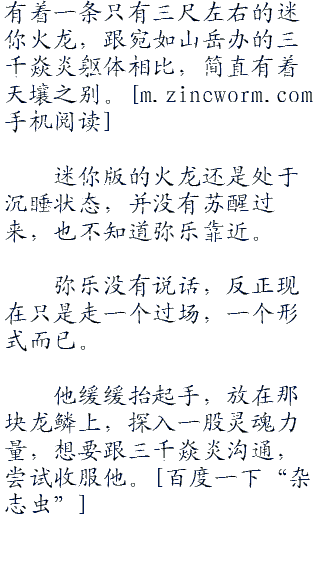 有着一条只有三尺左右的迷
你火龙，跟宛如山岳办的三
千焱炎躯体相比，简直有着
天壤之别。[m.zincworm.com
手机阅读]
迷你版的火龙还是处于
沉睡状态，并没有苏醒过
来，也不知道弥乐靠近。
弥乐没有说话，反正现
在只是走一个过场，一个形
式而已。
他缓缓抬起手，放在那
块龙鳞上，探入一股灵魂力
量，想要跟三千焱炎沟通，
尝试收服他。[百度一下“杂
志虫”]